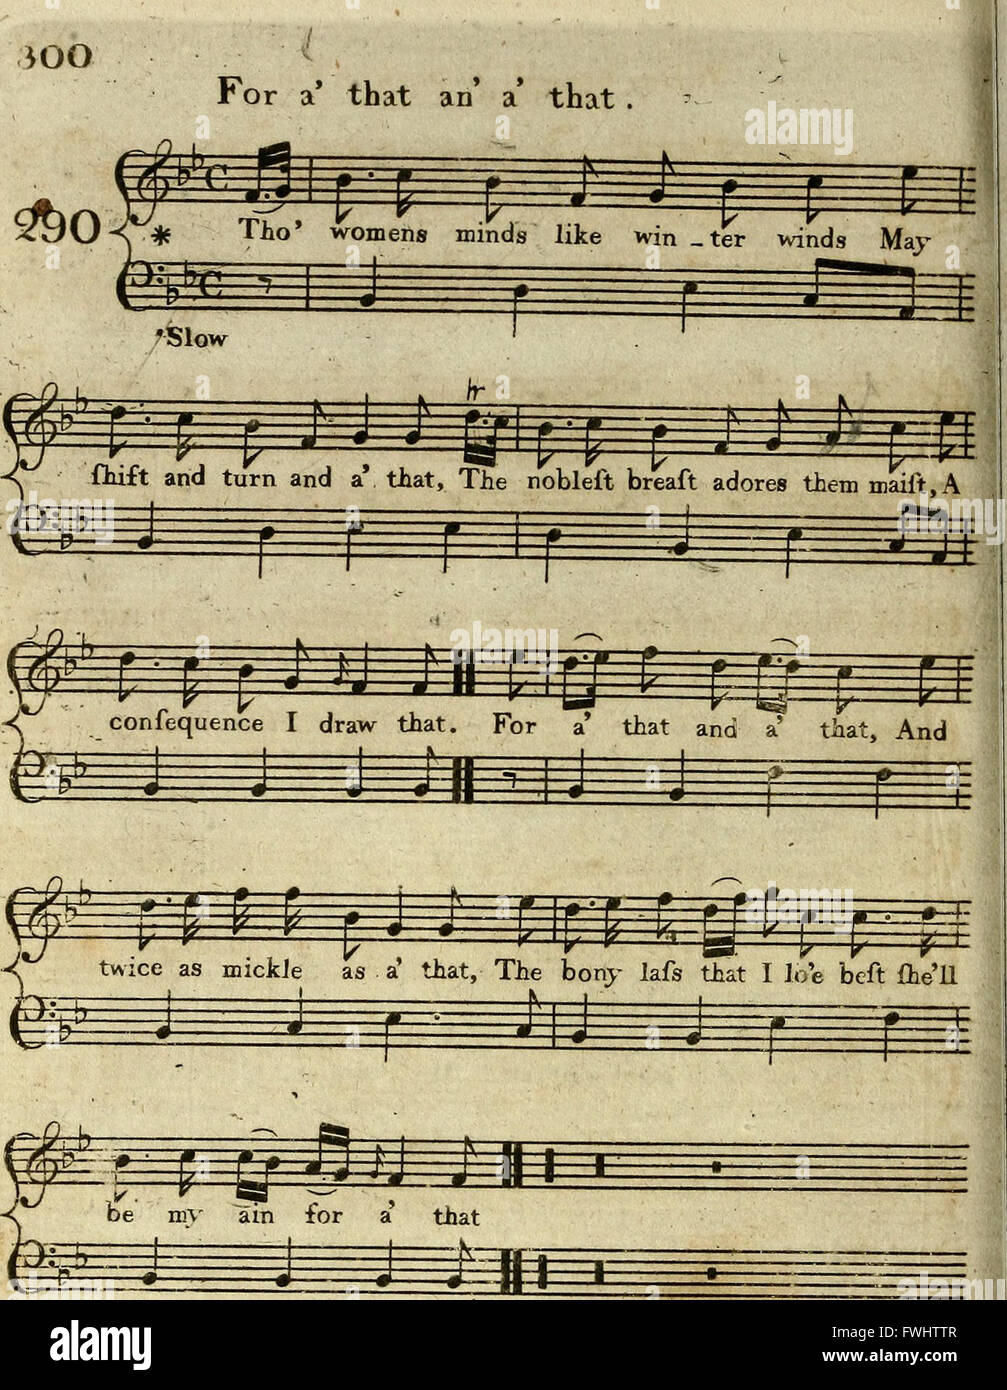 300
For a' that an' a' that.
290
* Tho' womens minds like win - ter winds May
Slow
tr
ſhift and turn and a' that, The nobleſt breaſt adores them maiſt, A
conſequence I draw that. For a' that and a' that, And
twice as mickle as a' that, The bony laſs that I lo'e beſt ſhe'll
be my ain for a' that
alamy stock photo
alamy
Image ID: FWHTTR
www.alamy.com